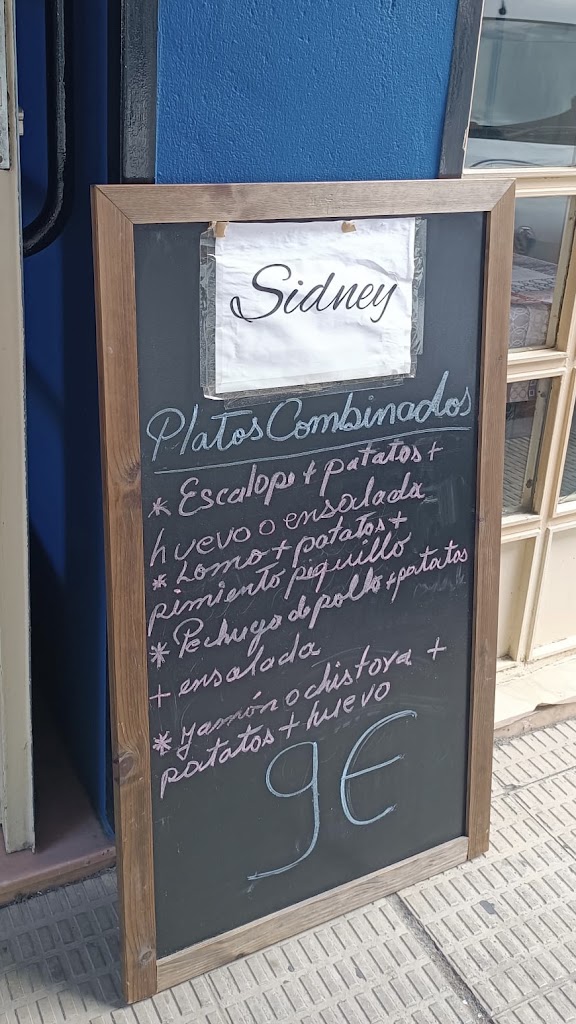 Sidney
Platos Combinados
* Escalope + patatas +
huevo o ensalada
* Lomo + patatas +
pimiento piquillo
* Pechuga de pollo + patatas
+ ensalada
* Jamón o chistora +
patatas + huevo
9€